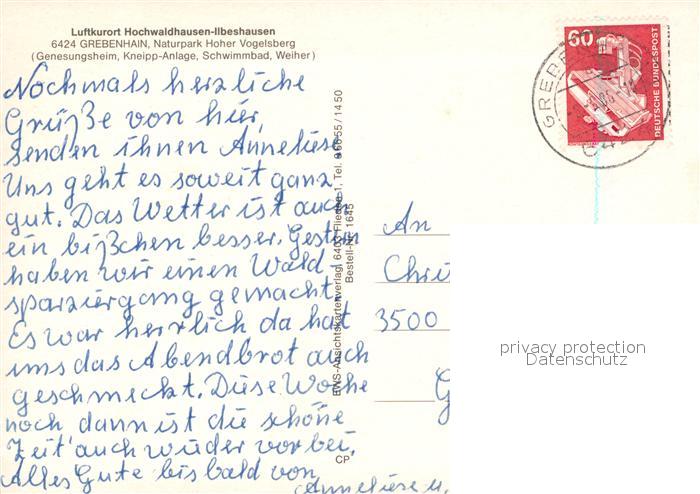 Luftkurort Hochwaldhausen-Ilbeshausen
6424 GREBENHAIN, Naturpark Hoher Vogelsberg
(Genesungsheim, Kneipp-Anlage, Schwimmbad, Weiher)
Nochmals herzliche
Grüße von hier,
senden ihnen Anneliese
Uns geht es soweit ganz
gut. Das Wetter ist auch
ein bißchen besser. Gestern
haben wir einen Wald-
spaziergang gemacht.
Es war herrlich da hat
uns das Abendbrot auch
geschmeckt. Diese Woche
noch dann ist die schöne
Zeit auch wieder vorbei.
Alles Gute bis bald von
Anneliese u.
EWS-Ansichtskartenverlag, 6403 Flieden 1, Tel.
Bestell-Nr. 1645
CP
60
DEUTSCHE BUNDESPOST
An
Chri
3500
G
privacy protection
Datenschutz